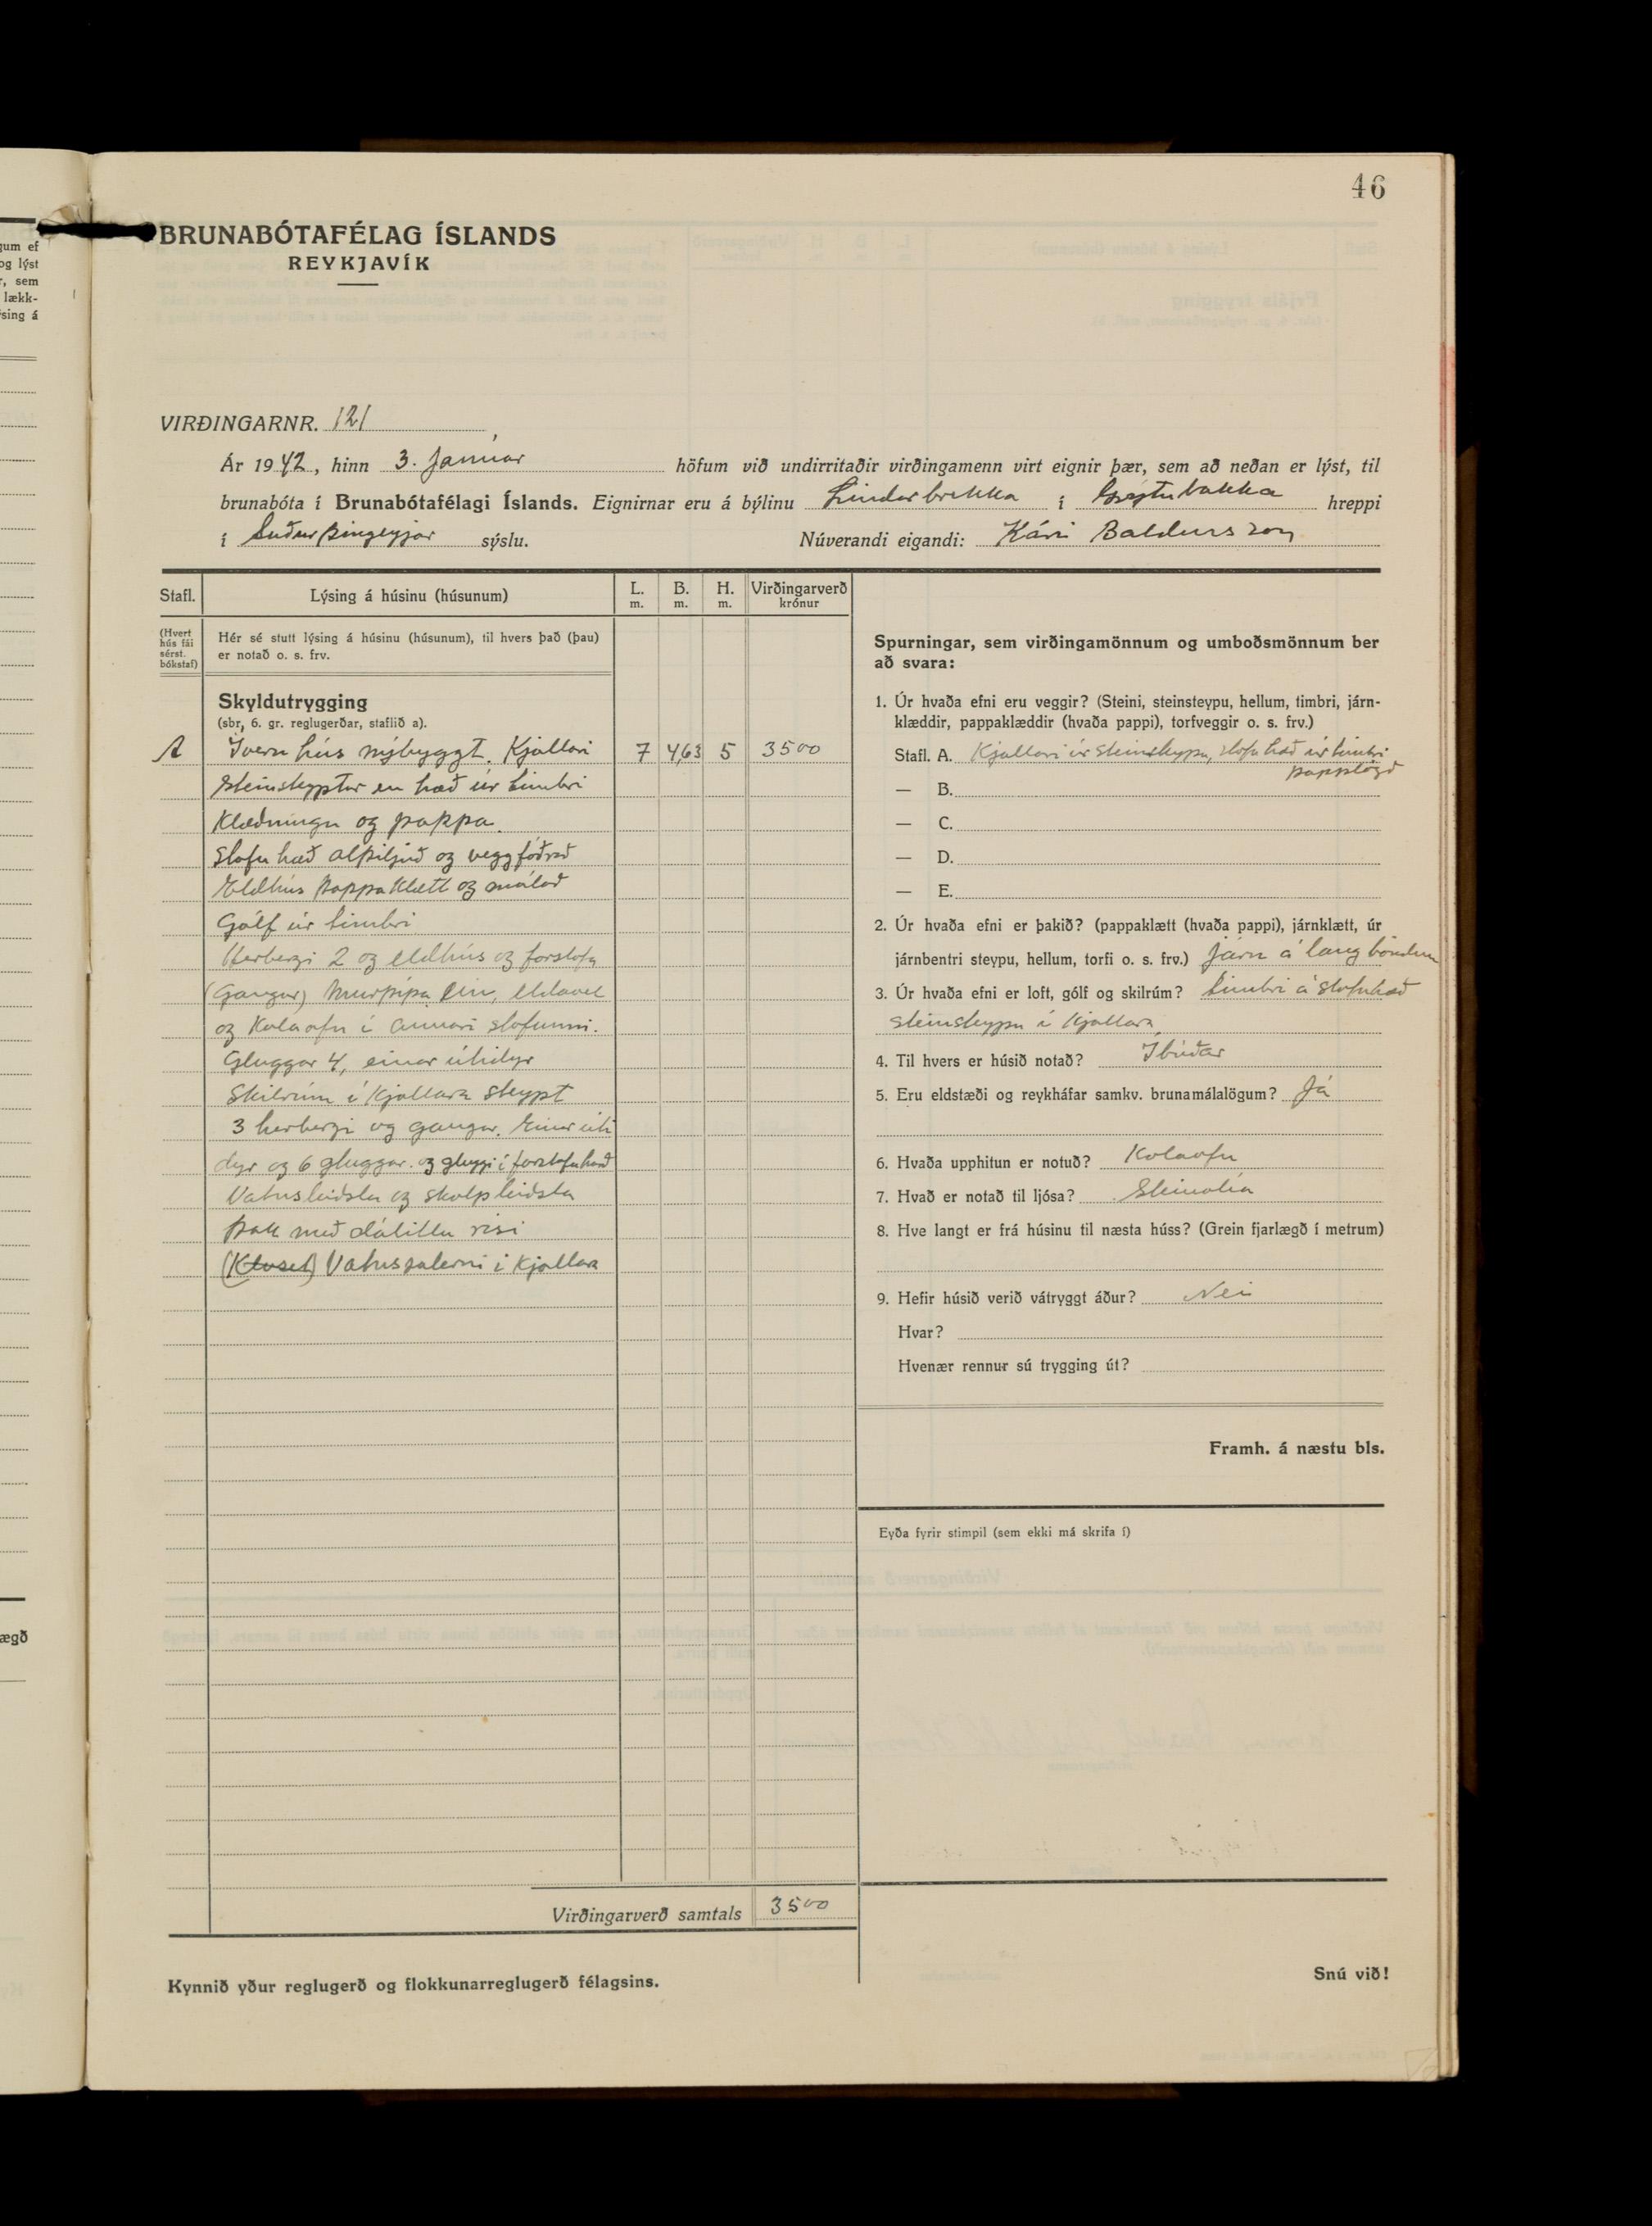 46
BRUNABÓTAFÉLAG ÍSLANDS
REYKJAVÍK
VIRÐINGARNR. 121
Ár 1942, hinn 3. Janúar höfum við undirritaðir virðingamenn virt eignir þær, sem að neðan er lýst, til
brunabóta í Brunabótafélagi Íslands. Eignirnar eru á býlinu Lindarbrekka í Grýtubakka hreppi
í Suður Þingeyjar sýslu. Núverandi eigandi: Kári Baldursson
Stafl. Lýsing á húsinu (húsunum) L. m. B. m. H. m. Virðingarverð krónur
(Hvert hús fái sérst. bókstaf)
Hér sé stutt lýsing á húsinu (húsunum), til hvers það (þau)
er notað o. s. frv.
Skyldutrygging
(sbr, 6. gr. reglugerðar, staflið a).
A Íveru hús nýbyggt. Kjallari 7 4,63 5 3500
Steinsteyptur en hæð úr timbri
Klæðningu og pappa.
Stofu hæð alþiljuð og veggfóðruð
Eldhús pappaklætt og málað
Gólf úr timbri
Herbergi 2 og eldhús og forstofa
(Gangur) Múrpípa ein, eldavel
og Kolaofn í annari stofunni.
Gluggar 4, einar útidyr
Skilrúm í Kjallara steypt
3 herbergi og gangur. Einar úti
dyr og 6 gluggar. og gluggi í forstofuhæð
Vatnsleiðsla og skolpleiðsla
Þak með dálitlu risi
(Kloset) Vatnssalerni í Kjallara
Virðingarverð samtals 3500
Kynnið yður reglugerð og flokkunarreglugerð félagsins.
Spurningar, sem virðingamönnum og umboðsmönnum ber
að svara:
1. Úr hvaða efni eru veggir? (Steini, steinsteypu, hellum, timbri, járn-
klæddir, pappaklæddir (hvaða pappi), torfveggir o. s. frv.)
Stafl. A. Kjallari úr steinsteypu, stofu hæð úr timbri
papplögð
— B.
— C.
— D.
— E.
2. Úr hvaða efni er þakið? (pappaklætt (hvaða pappi), járnklætt, úr
járnbentri steypu, hellum, torfi o. s. frv.) Járn á lang böndum
3. Úr hvaða efni er loft, gólf og skilrúm? timbri á stofuhæð
steinsteypu í Kjallara
4. Til hvers er húsið notað? Íbúðar
5. Eru eldstæði og reykháfar samkv. brunamálalögum? Já
6. Hvaða upphitun er notuð? Kolaofn
7. Hvað er notað til ljósa? Steinolía
8. Hve langt er frá húsinu til næsta húss? (Grein fjarlægð í metrum)
9. Hefir húsið verið vátryggt áður? Nei
Hvar?
Hvenær rennur sú trygging út?
Framh. á næstu bls.
Eyða fyrir stimpil (sem ekki má skrifa í)
Snú við!